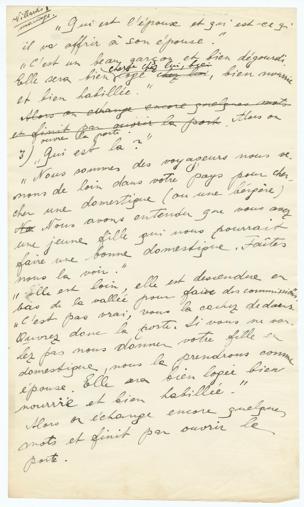 Villards 8
mariage
"Qui est l'épouse et qui est-ce qui
il va offrir à son épouse."
"C'est un beau garçon et bien dégourdi.
Elle sera bien logée chez lui, bien nourrie
et bien habillée."
Alors on échange encore quelques mots
et finit par ouvrir la porte Alors on
ouvre la porte.
3) "Qui est là?"
"Nous sommes des voyageurs nous ve-
nons de loin dans votre pays pour cher-
cher une domestique (ou une bergère)
Nous avons entendu que vous avez
une jeune fille qui nous pourrait
faire une bonne domestique. Faites
nous la voir."
"Elle est loin, elle est descendue en
bas de la vallée pour faire des commissions
"C'est pas vrai, vous la cachez dedans.
Ouvrez donc la porte. Si vous ne vou-
lez pas nous donner votre fille en
domestique, nous la prendrons comme
épouse. Elle sera bien logée bien
nourrie et bien habillée."
Alors on échange encore quelques
mots et finit par ouvrir la
porte.